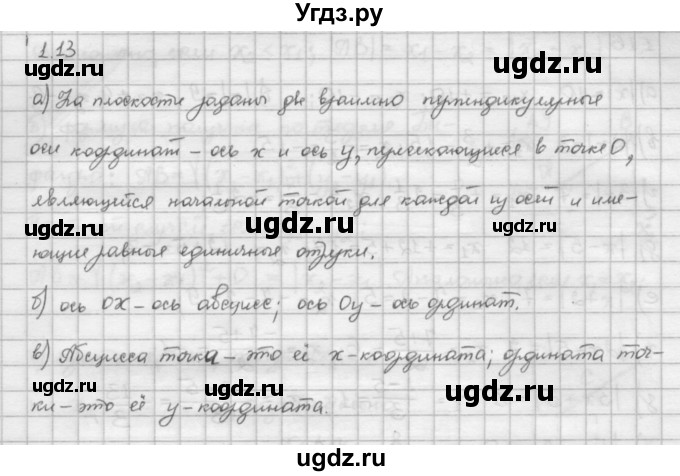 Угдз.ру
1.13
а) На плоскости заданы две взаимно перпендикулярные
оси координат – ось x и ось y, пересекающиеся в точке O,
являющейся начальной точкой для каждой из осей и име-
ющие равные единичные отрезки.
б) ось OX – ось абсцисс; ось Oy – ось ординат.
в) Абсцисса точка – это её x-координата; ордината точ-
ки – это её y-координата.
ugdz.ru
ugdz.ru
ugdz.ru
ugdz.ru
ugdz.ru
ugdz.ru
ugdz.ru
ugdz.ru
ugdz.ru
ugdz.ru
ugdz.ru
ugdz.ru
ugdz.ru